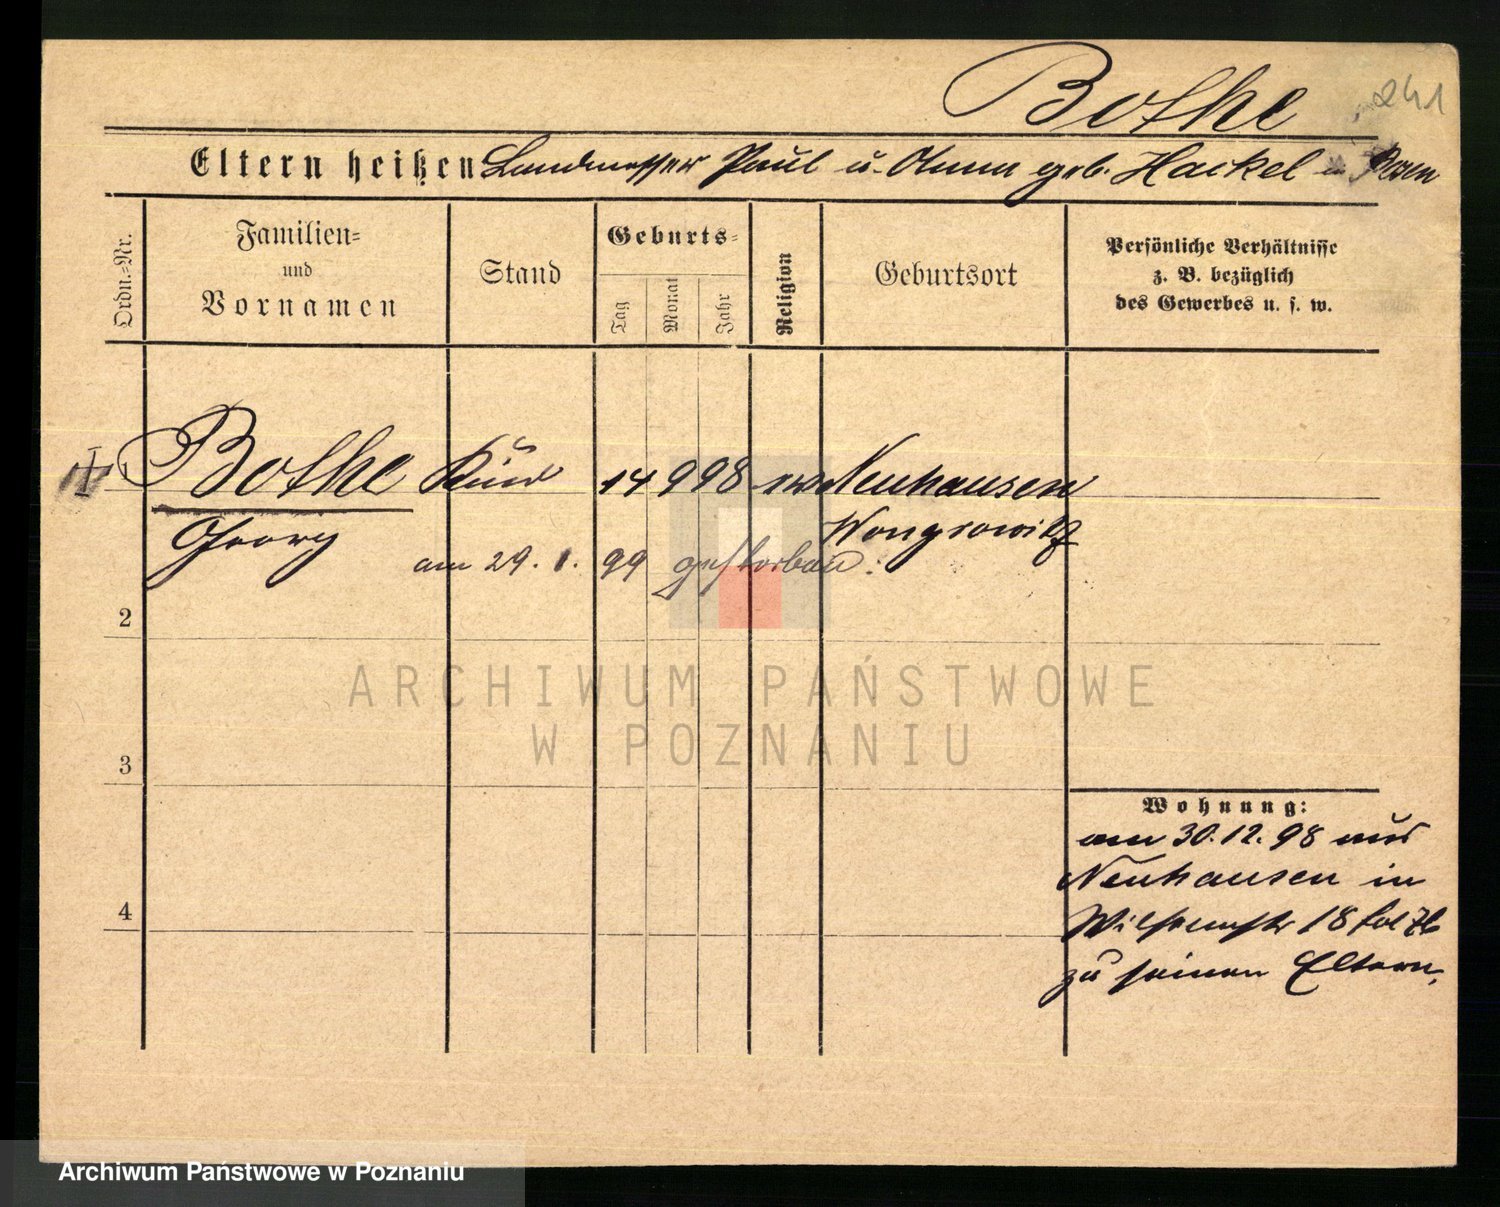 Bothe 241
Eltern heißen Landmesser Paul u. Anna geb. Hackel in Posen
Ordn.-Nr.
Familien-
und
Vornamen
Stand
Geburts-
Tag
Monat
Jahr
Religion
Geburtsort
Persönliche Verhältnisse
z. B. bezüglich
des Gewerbes u. s. w.
1 Bothe Kind 14 9 98 ev Neuhausen
Georg Wongrowitz
am 29. 1. 99 gestorben.
2
ARCHIWUM PAŃSTWOWE
W POZNANIU
3
Wohnung:
am 30.12.98 aus
Neuhausen in
4
18 fol 76
zu seinen Eltern,
Archiwum Państwowe w Poznaniu